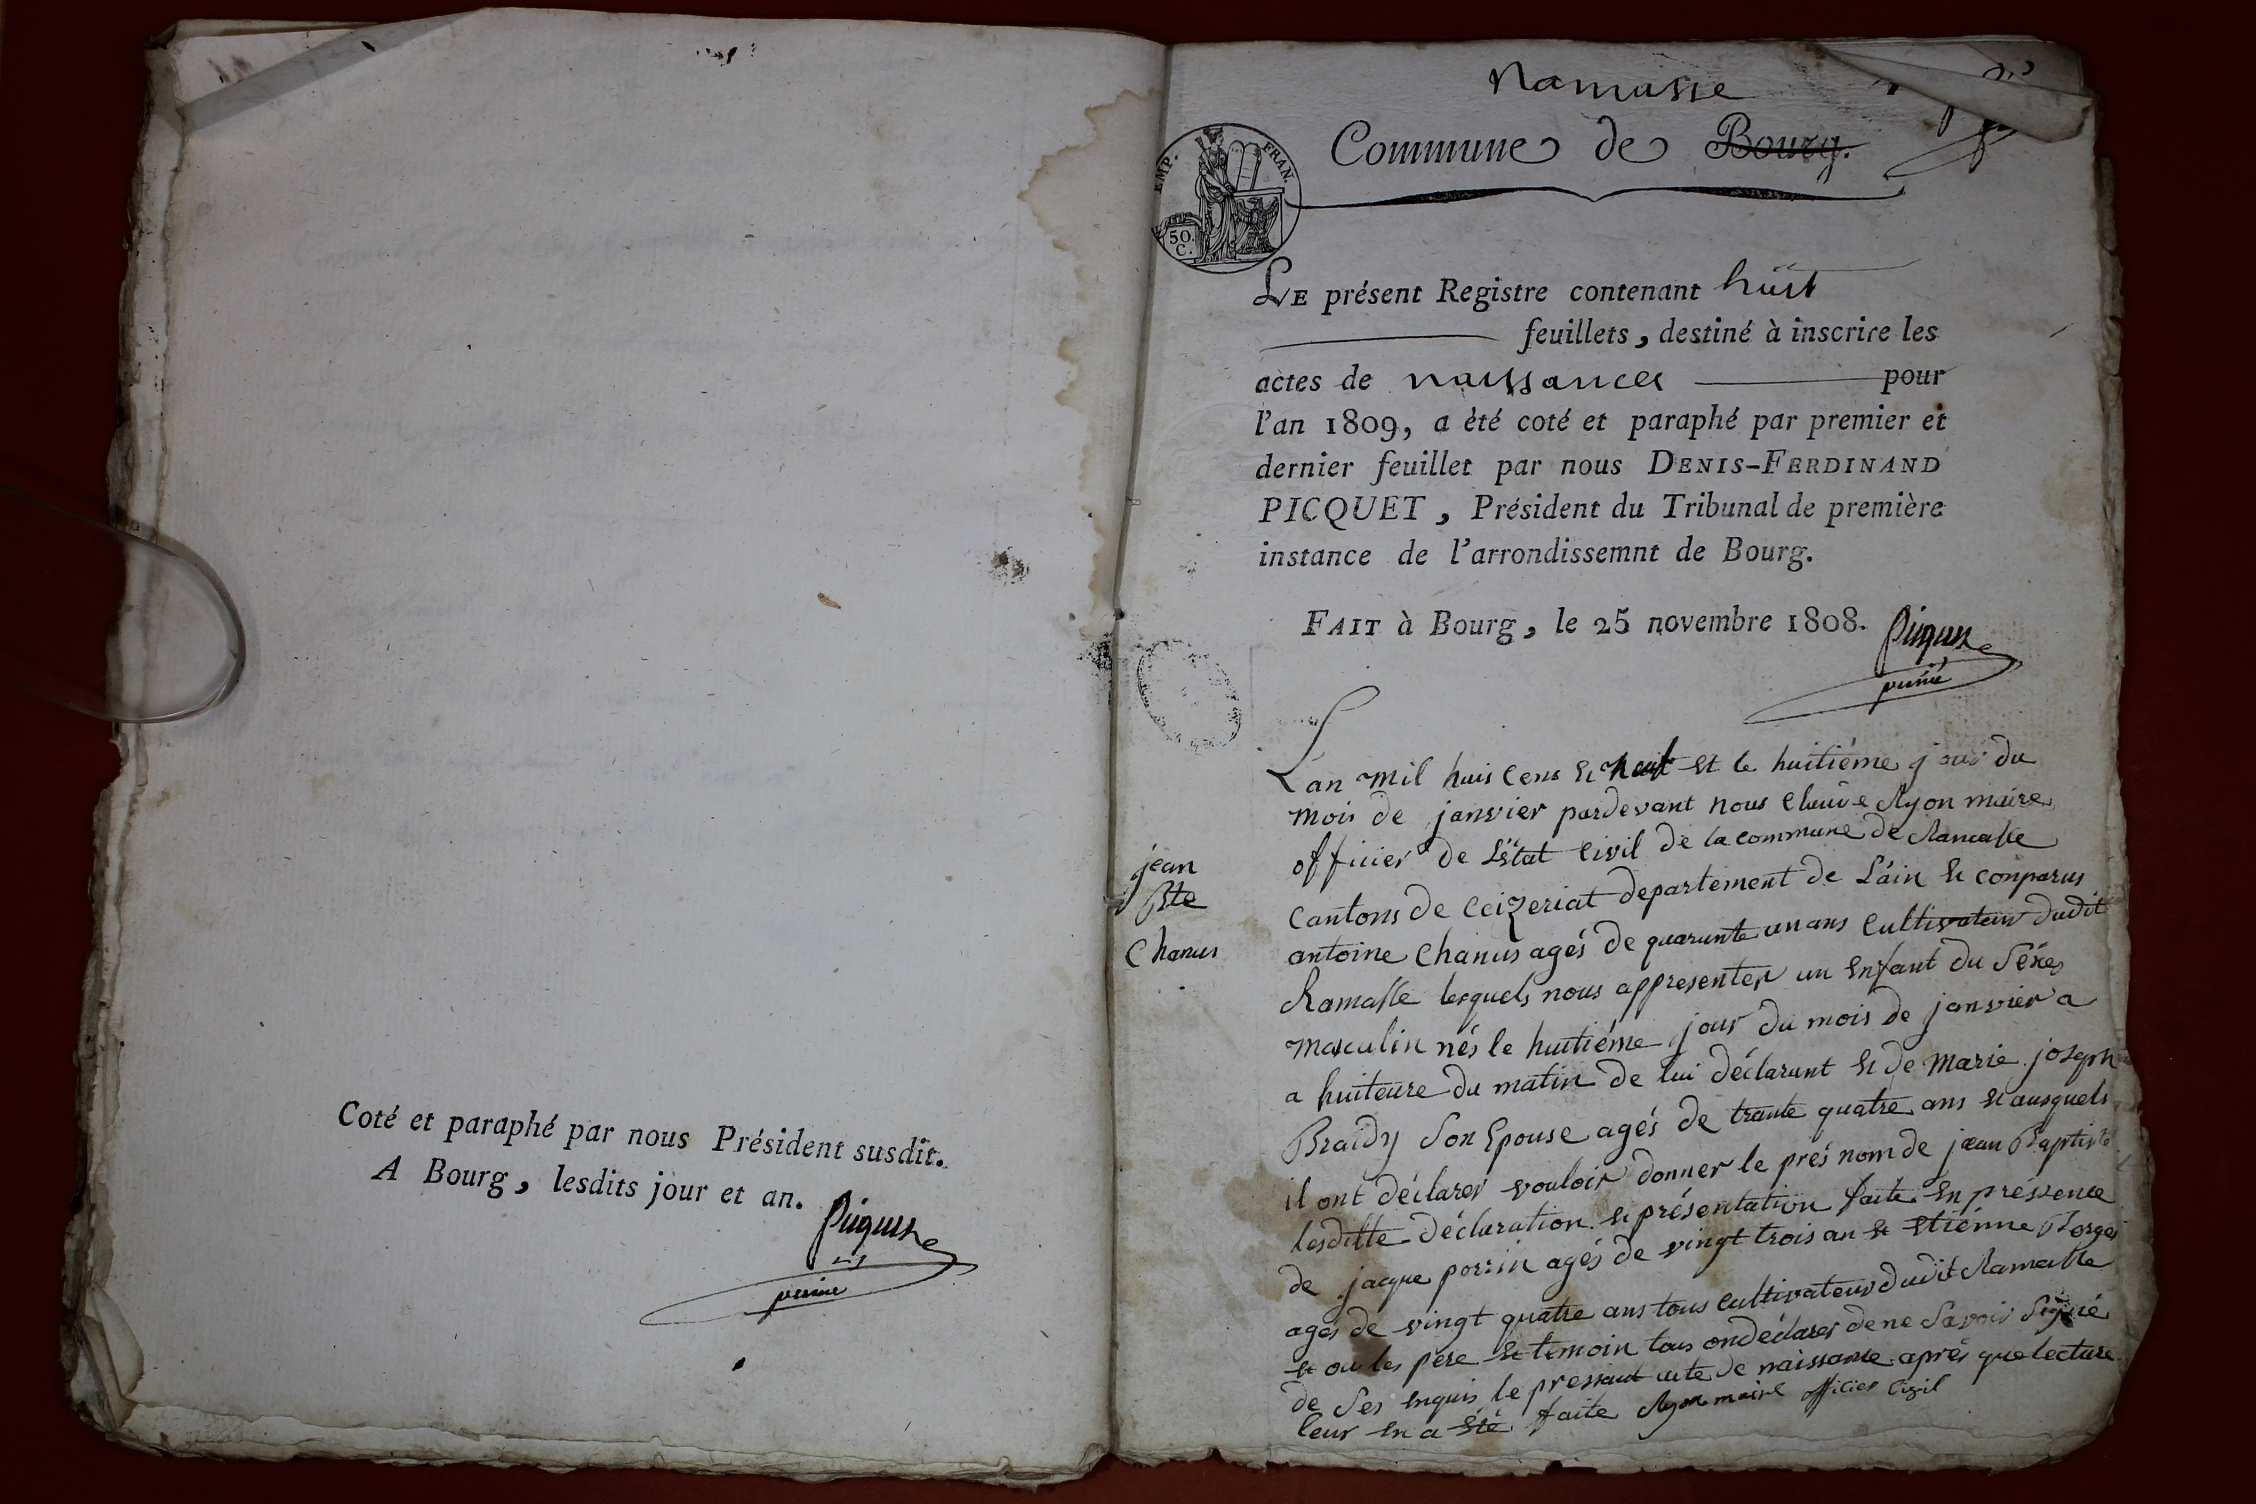 Coté et paraphé par nous Président susdit.
A Bourg, lesdits jour et an.
Picquet
Ramasse
Commune de Bourg.
EMP. FRAN.
50.
C.
LE présent Registre contenant huit
feuillets, destiné à inscrire les
actes de naissances pour
l'an 1809, a été coté et paraphé par premier et
dernier feuillet par nous DENIS-FERDINAND
PICQUET, Président du Tribunal de première
instance de l'arrondissemnt de Bourg.
FAIT à Bourg, le 25 novembre 1808.
Picquet
jean
Bte
Chanus
L'an mil huis cens et neuf et le huitiéme jour du
mois de janvier pardevant nous Claude Ryon maire
officier de L'état Civil de la commune de Ramasse
Cantons de Ceizeriat departement de L'ain et conparus
antoine Chanus agés de quarante un ans Cultivateur dudit
Ramasse lesquels nous appresenter un Enfant du Séxes
masculin nés le huitiéme jour du mois de janvier a
a huiteure du matin de lui déclarant et de marie joseph
Braidy Son Epouse agés de trante quatre ans et ausquels
il ont déclarer vouloir donner le prés nom de jean Baptiste
lesditte déclaration et présentation faite En préssence
de jacque perrin agés de vingt trois an et Etiénne
agés de vingt quatre ans tous Cultivateur dudit Ramasse
et ou les pére et temoin tous ondéclarer de ne Savoir Signé
de Ses enquis le pressant acte de naissance aprés que lecture
leur En a été faite Ryon maire officier Civil